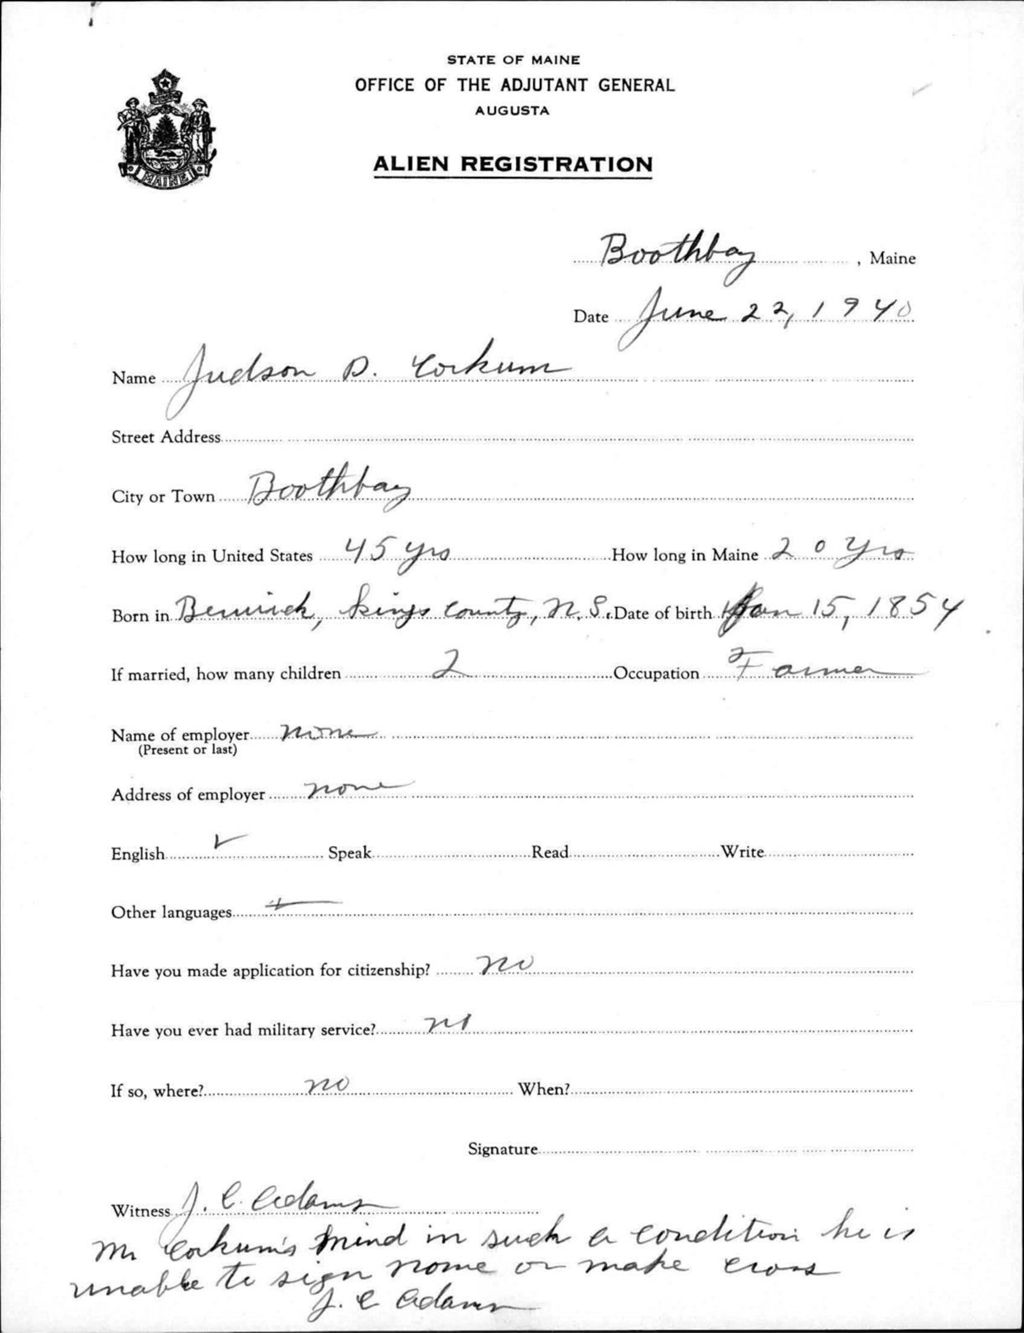 STATE OF MAINE
OFFICE OF THE ADJUTANT GENERAL
AUGUSTA
ALIEN REGISTRATION
MAINE
Boothbay, Maine
Date June 22, 1940
Name Judson D. Corkum
Street Address
City or Town Boothbay
How long in United States 45 yrs How long in Maine 20 yrs
Born in Berwick, Kings County, N.S. Date of birth Jan 15, 1854
If married, how many children 2 Occupation Farmer
Name of employer none
(Present or last)
Address of employer none
English ✓ Speak Read Write
Other languages
Have you made application for citizenship? no
Have you ever had military service? no
If so, where? no When?
Signature
Witness J. C. Adams
Mr Corkum's mind in such a condition he is
unable to sign name or make cross
J. C Adams